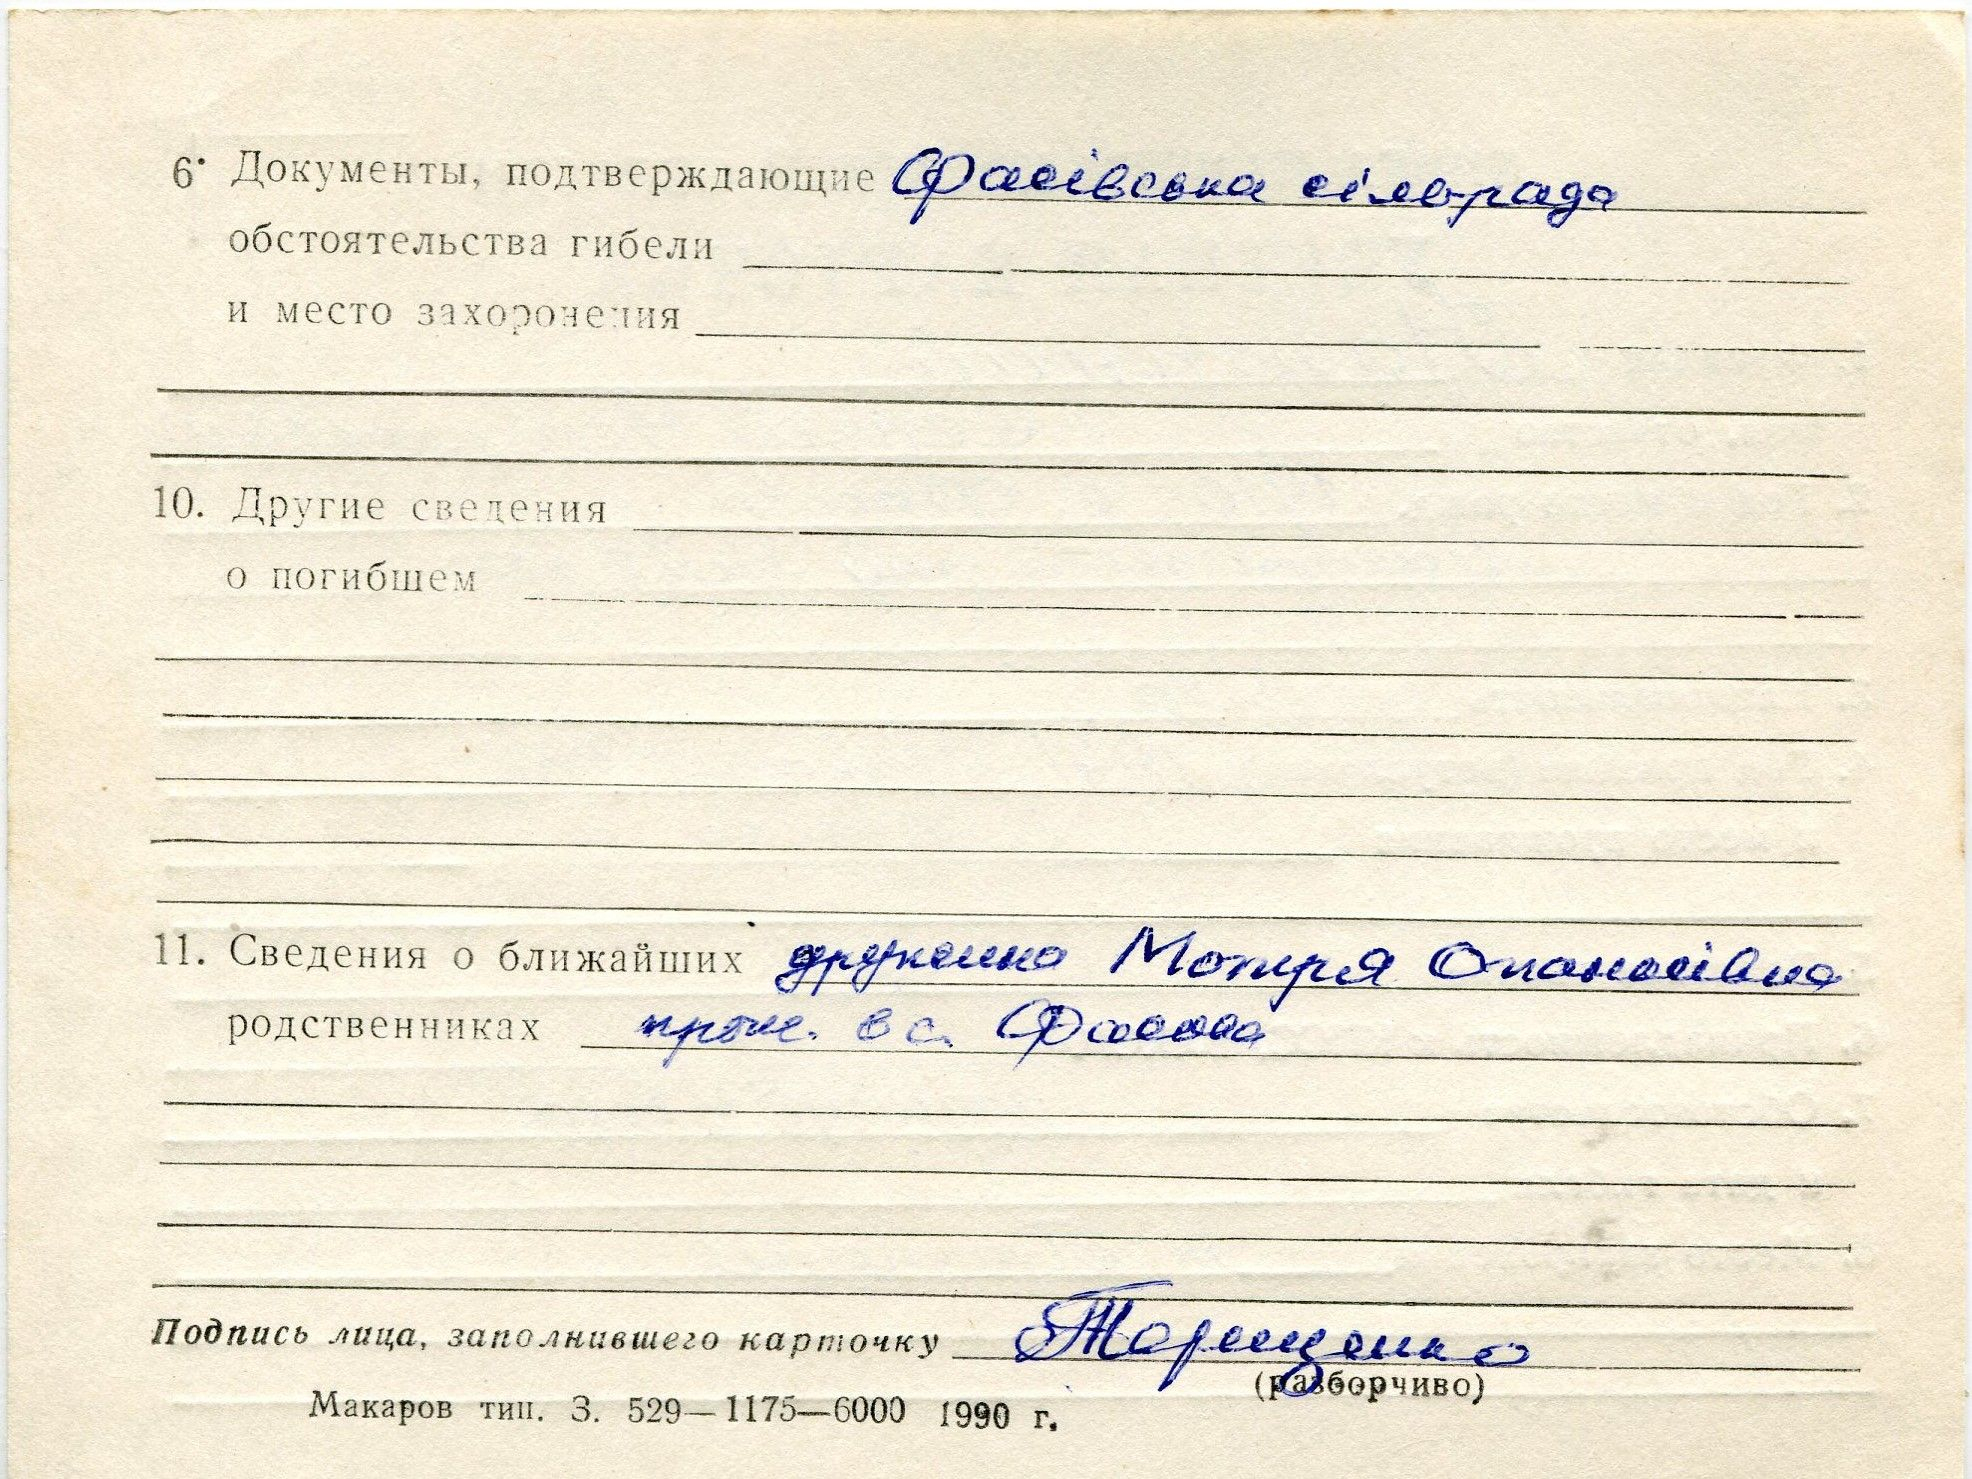 6. Документы, подтверждающие Фасівська сільрада
обстоятельства гибели
и место захоронения
10. Другие сведения
о погибшем
11. Сведения о ближайших дружина Мотря Опанасівна
родственниках прож. в с. Фасова
Подпись лица, заполнившего карточку Терещенко
(разборчиво)
Макаров тип. З. 529—1175—6000 1990 г.